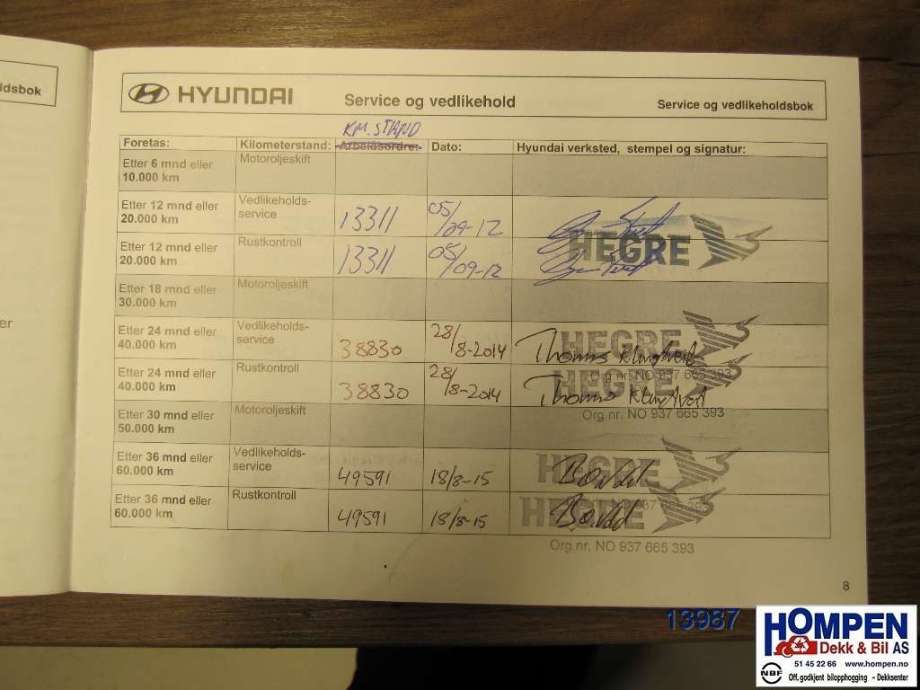 dsbok
er
HYUNDAI Service og vedlikehold Service og vedlikeholdsbok
KM. STAND
Foretas: Kilometerstand: Arbeidsordre: Dato: Hyundai verksted, stempel og signatur:
Etter 6 mnd eller Motoroljeskift
10.000 km
Etter 12 mnd eller Vedlikeholds- 13311 05/
20.000 km service 09-12
Etter 12 mnd eller Rustkontroll 13311 05/ HEGRE
20.000 km 09-12
Etter 18 mnd eller Motoroljeskift
30.000 km
Etter 24 mnd eller Vedlikeholds- 38830 28/ HEGRE
40.000 km service 8-2014 Thomas
Org nr. NO 937 665 393
Etter 24 mnd eller Rustkontroll 38830 28/ HEGRE
40.000 km 8-2014 Thomas
Org.nr. NO 937 665 393
Etter 30 mnd eller Motoroljeskift
50.000 km
Etter 36 mnd eller Vedlikeholds- 49591 18/8-15 HEGRE
60.000 km service
Etter 36 mnd eller Rustkontroll 49591 18/8-15 HEGRE
60.000 km
Org.nr. NO 937 665 393
8
13987
HOMPEN
Dekk & Bil AS
NBF 51 45 22 66 www.hompen.no
Off. godkjent bilopphogging - Dekksenter